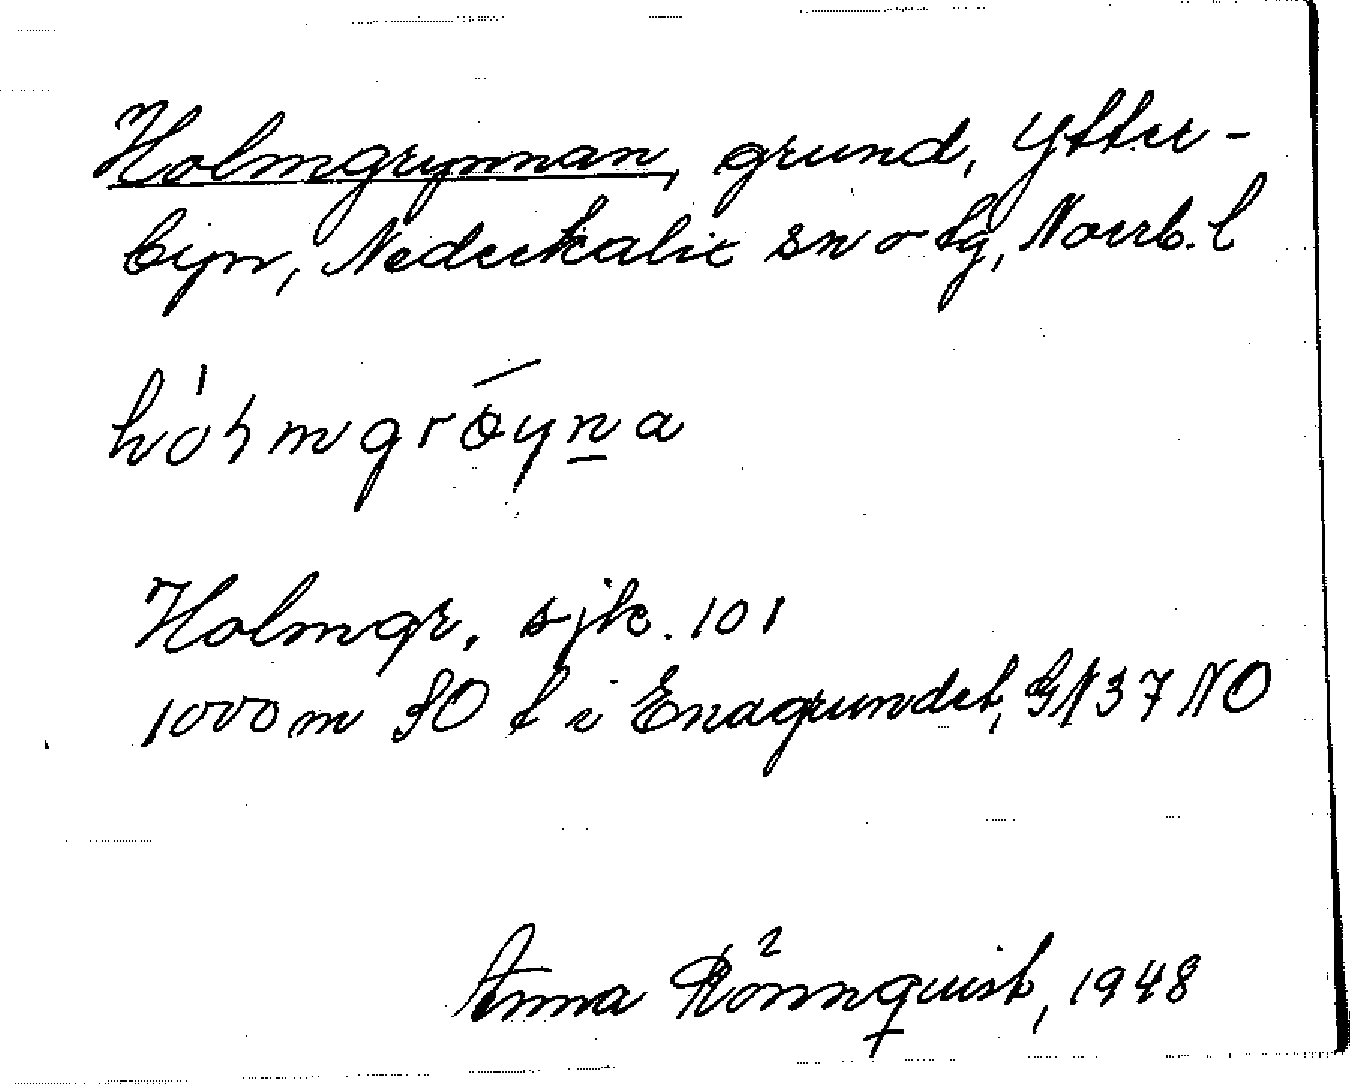 Holmgrynnan, grund, Ytter-
byn, Nederkalix sn o tg, Norrb. l
Holmgr, sjk. 101
1000 m SO t i Enagrundet, GN 37 NO
Anna Rönnquist, 1948